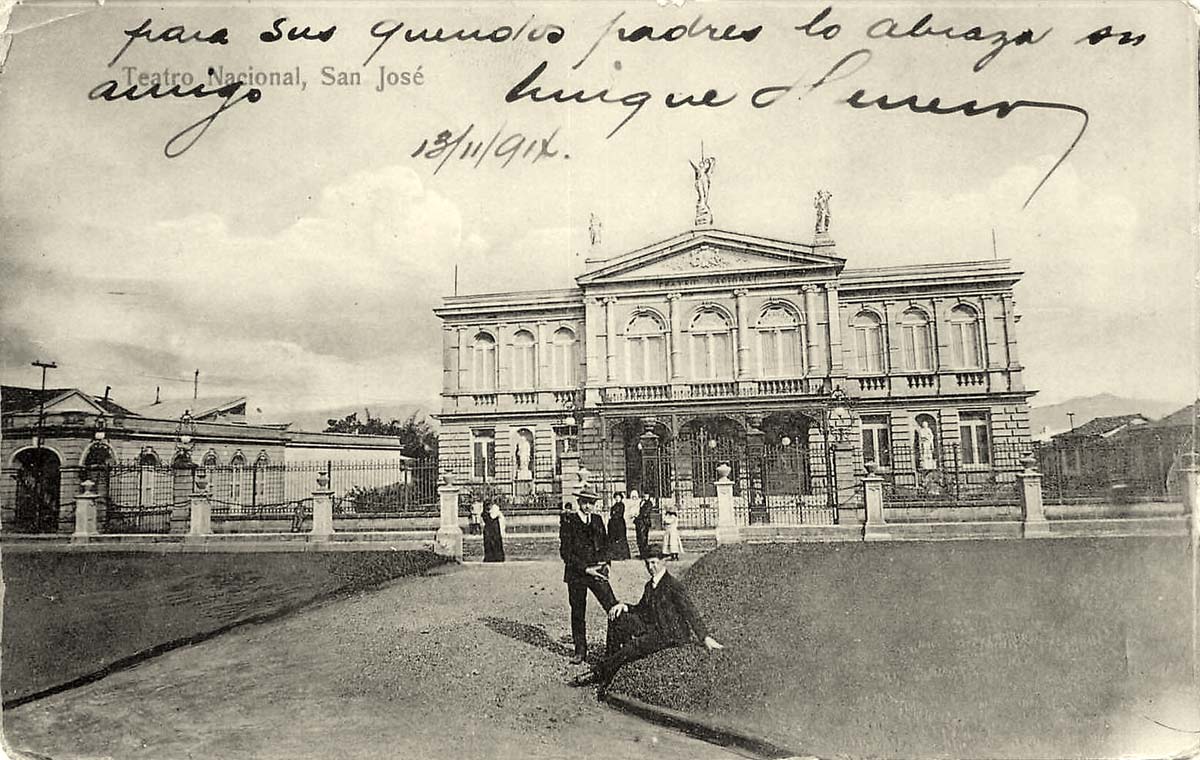 para sus queridos padres lo abraza su
Teatro Nacional, San José
amigo Enrique
13/11/914.
TEATRO NACIONAL